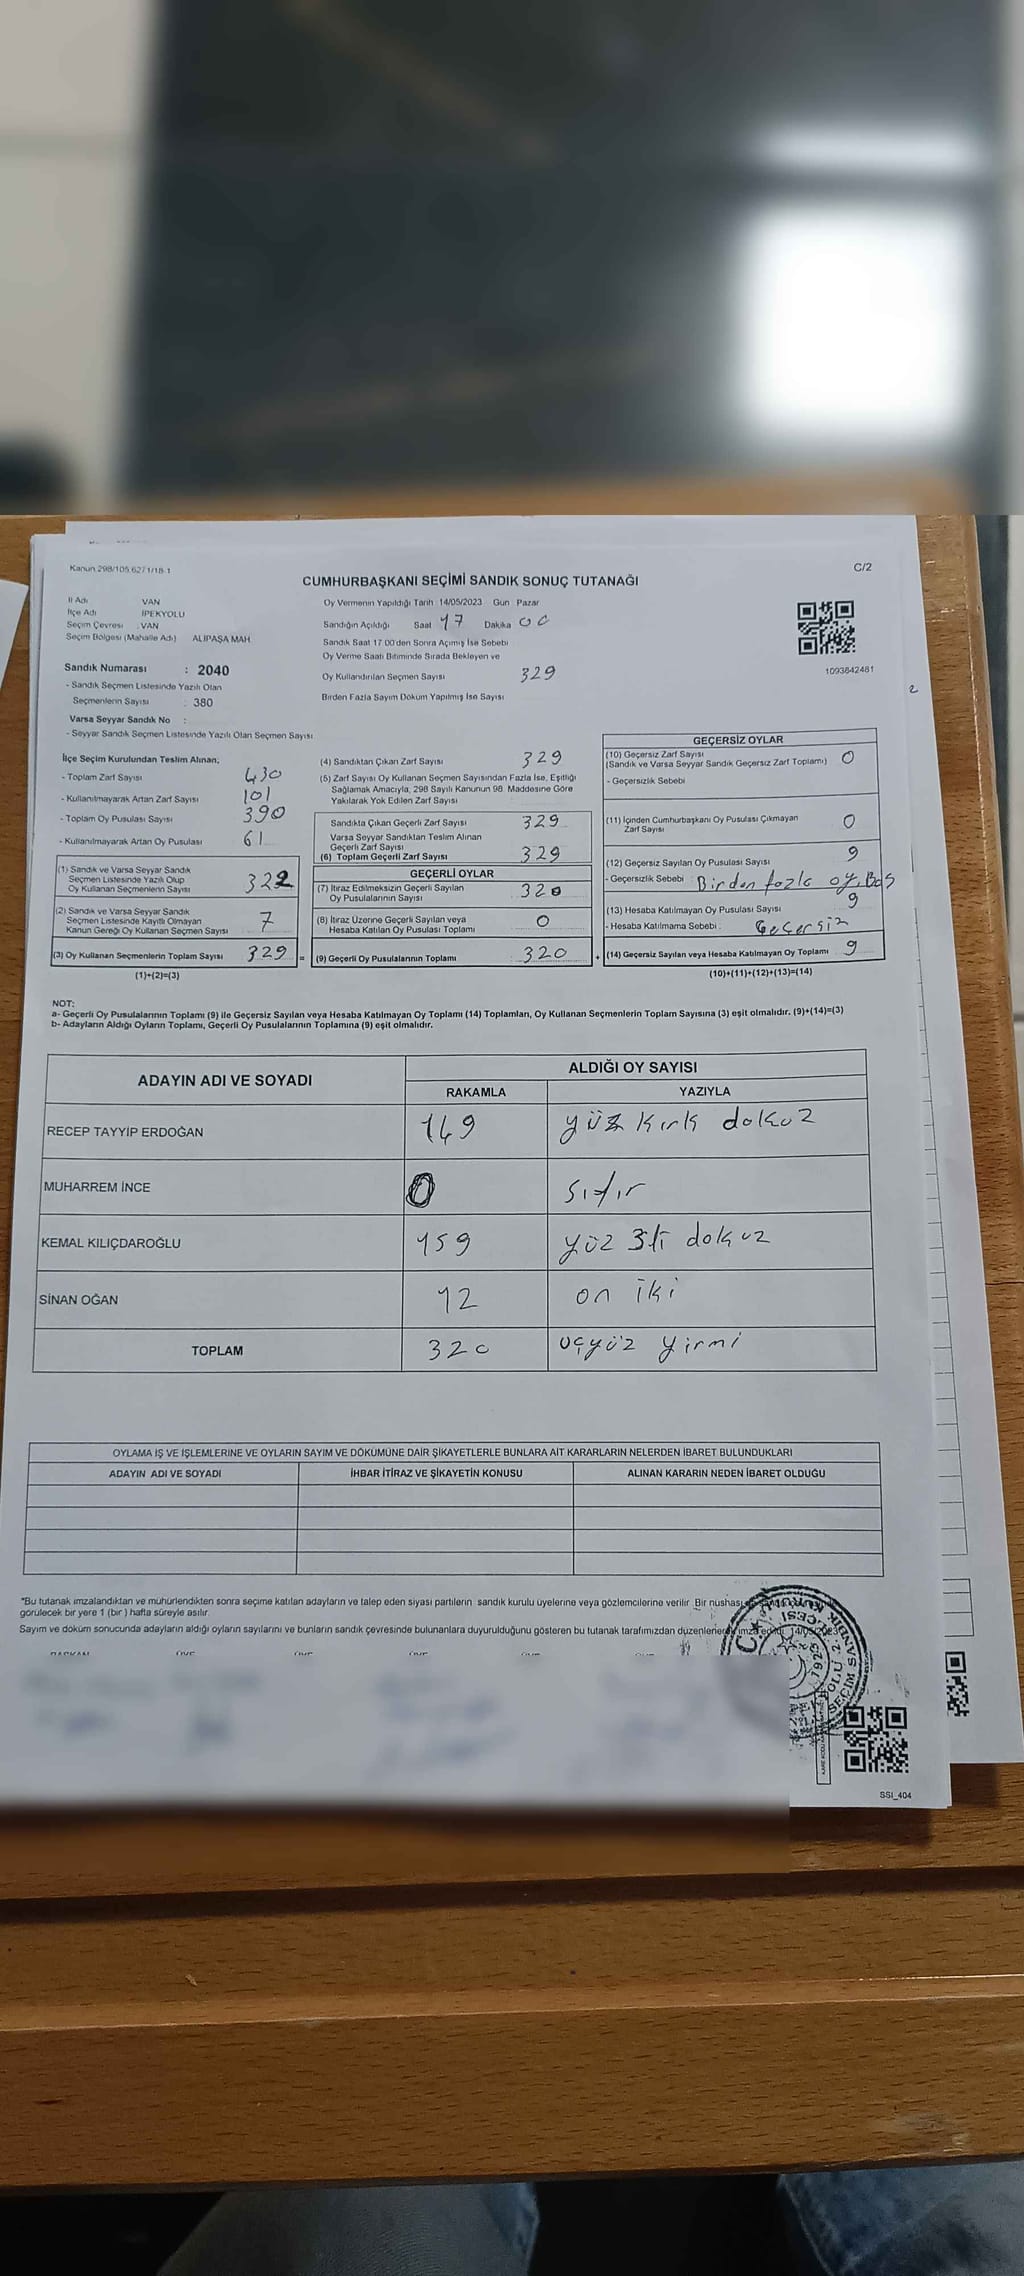 Kanun 298/105 6271/18-1
C/2
CUMHURBAŞKANI SEÇİMİ SANDIK SONUÇ TUTANAĞI
İl Adı VAN
İlçe Adı İPEKYOLU
Seçim Çevresi VAN
Seçim Bölgesi (Mahalle Adı) ALİPAŞA MAH
Sandık Numarası : 2040
- Sandık Seçmen Listesinde Yazılı Olan
Seçmenlerin Sayısı 380
Varsa Seyyar Sandık No :
- Seyyar Sandık Seçmen Listesinde Yazılı Olan Seçmen Sayısı
Oy Vermenin Yapıldığı Tarih 14/05/2023 Gün Pazar
Sandığın Açıldığı Saat 17 Dakika 00
Sandık Saat 17 00'den Sonra Açımış İse Sebebi
Oy Verme Saati Bitiminde Sırada Bekleyen ve
Oy Kullandırılan Seçmen Sayısı 329
Birden Fazla Sayım Döküm Yapılmış İse Sayısı
1093842481
2
İlçe Seçim Kurulundan Teslim Alınan;
- Toplam Zarf Sayısı 430
- Kullanılmayarak Artan Zarf Sayısı 101
- Toplam Oy Pusulası Sayısı 390
- Kullanılmayarak Artan Oy Pusulası 61
(1) Sandık ve Varsa Seyyar Sandık
Seçmen Listesinde Yazılı Olup
Oy Kullanan Seçmenlerin Sayısı 322
(2) Sandık ve Varsa Seyyar Sandık
Seçmen Listesinde Kayıtlı Olmayan
Kanun Gereği Oy Kullanan Seçmen Sayısı 7
(3) Oy Kullanan Seçmenlerin Toplam Sayısı 329 =
(1)+(2)=(3)
(4) Sandıktan Çıkan Zarf Sayısı 329
(5) Zarf Sayısı Oy Kullanan Seçmen Sayısından Fazla İse, Eşitliği
Sağlamak Amacıyla, 298 Sayılı Kanunun 98. Maddesine Göre
Yakılarak Yok Edilen Zarf Sayısı
Sandıkta Çıkan Geçerli Zarf Sayısı 329
Varsa Seyyar Sandıktan Teslim Alınan
Geçerli Zarf Sayısı
(6) Toplam Geçerli Zarf Sayısı 329
GEÇERLİ OYLAR
(7) İtiraz Edilmeksizin Geçerli Sayılan
Oy Pusulalarının Sayısı 320
(8) İtiraz Üzerine Geçerli Sayılan veya
Hesaba Katılan Oy Pusulası Toplamı 0
(9) Geçerli Oy Pusulalarının Toplamı 320 +
GEÇERSİZ OYLAR
(10) Geçersiz Zarf Sayısı
(Sandık ve Varsa Seyyar Sandık Geçersiz Zarf Toplamı) 0
- Geçersizlik Sebebi
(11) İçinden Cumhurbaşkanı Oy Pusulası Çıkmayan
Zarf Sayısı 0
(12) Geçersiz Sayılan Oy Pusulası Sayısı 9
- Geçersizlik Sebebi : Birden fazla oy,Bas
(13) Hesaba Katılmayan Oy Pusulası Sayısı 9
- Hesaba Katılmama Sebebi : Geçersiz
(14) Geçersiz Sayılan veya Hesaba Katılmayan Oy Toplamı 9
(10)+(11)+(12)+(13)=(14)
NOT:
a- Geçerli Oy Pusulalarının Toplamı (9) ile Geçersiz Sayılan veya Hesaba Katılmayan Oy Toplamı (14) Toplamları, Oy Kullanan Seçmenlerin Toplam Sayısına (3) eşit olmalıdır. (9)+(14)=(3)
b- Adayların Aldığı Oyların Toplamı, Geçerli Oy Pusulalarının Toplamına (9) eşit olmalıdır.
ADAYIN ADI VE SOYADI ALDIĞI OY SAYISI
RAKAMLA YAZIYLA
RECEP TAYYİP ERDOĞAN 149 yüz kırk dokuz
MUHARREM İNCE 0 sıfır
KEMAL KILIÇDAROĞLU 159 yüz elli dokuz
SİNAN OĞAN 12 on iki
TOPLAM 320 üçyüz yirmi
OYLAMA İŞ VE İŞLEMLERİNE VE OYLARIN SAYIM VE DÖKÜMÜNE DAİR ŞİKAYETLERLE BUNLARA AİT KARARLARIN NELERDEN İBARET BULUNDUKLARI
ADAYIN ADI VE SOYADI İHBAR İTİRAZ VE ŞİKAYETİN KONUSU ALINAN KARARIN NEDEN İBARET OLDUĞU
*Bu tutanak imzalandıktan ve mühürlendikten sonra seçime katılan adayların ve talep eden siyasi partilerin sandık kurulu üyelerine veya gözlemcilerine verilir Bir nushası
görülecek bir yere 1 (bir ) hafta süreyle asılır
Sayım ve döküm sonucunda adayların aldığı oyların sayılarını ve bunların sandık çevresinde bulunanlara duyurulduğunu gösteren bu tutanak tarafımızdan düzenlenerek imza edildi 14/05/2023
SSI_404